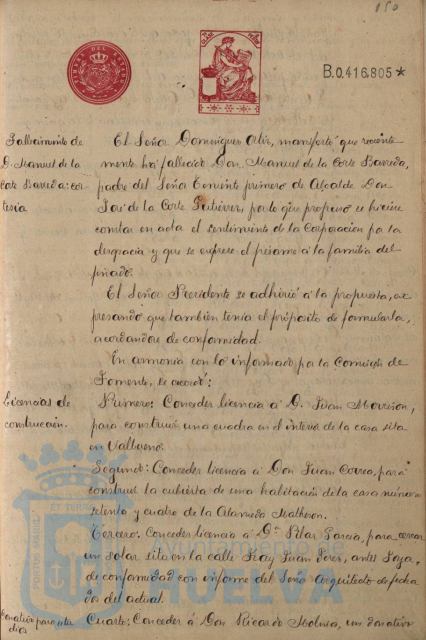 150
B.0.416.805*
Fallecimiento de
D. Manuel de la
Corte Barreda: cor-
tesía
El Señor Dominguez Ortiz, manifestó que reciente
mente há fallecido Don Manuel de la Corte Barreda,
padre del Señor Teniente primero de Alcalde Don
José de la Corte Gutiérrez, por lo que propuso se hiciese
constar en acta el sentimiento de la Corporación por la
desgracia y que se exprese el pésame á la familia del
finado.
El Señor Presidente se adhirió á la propuesta, ex
presando que también tenía el propósito de formularla,
acordandose de conformidad.
En armonía con lo informado por la Comisión de
Fomento, se acordó:
Licencias de
construcción.
Primero: Conceder licencia á D. Juan
para construir una cuadra en el interior de la casa sita
en
Segundo: Conceder licencia á Don Juan Correa, para
construir la cubierta de una habitación de la casa número
setenta y cuatro de la Alameda Sundheim.
Tercero: Conceder licencia á Dª Pilar García, para cercar
un solar sito en la calle Fray Juan Perez, antes
de conformidad con informe del Señor Arquitecto de fecha
dos del actual.
Donativo para estu
dios
Cuarto: Conceder á Don Ricardo un donativo
Ayuntamiento de
HUELVA